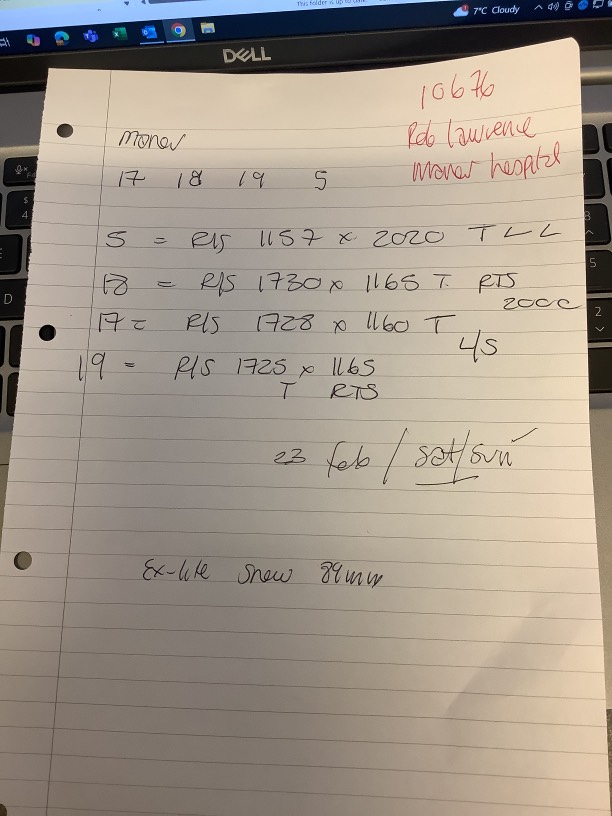 7°C Cloudy
DELL
10676
Rob Lawrence
Manor hospital
Manor
17 18 19 5
5 = R/S 1157 x 2020 T L L
18 = R/S 1730 x 1165 T RTS
2000
17 = R/S 1728 x 1160 T
4/S
19 = R/S 1725 x 1165
T RTS
23 feb / sat/sun
Ex-lite Snow 89mm